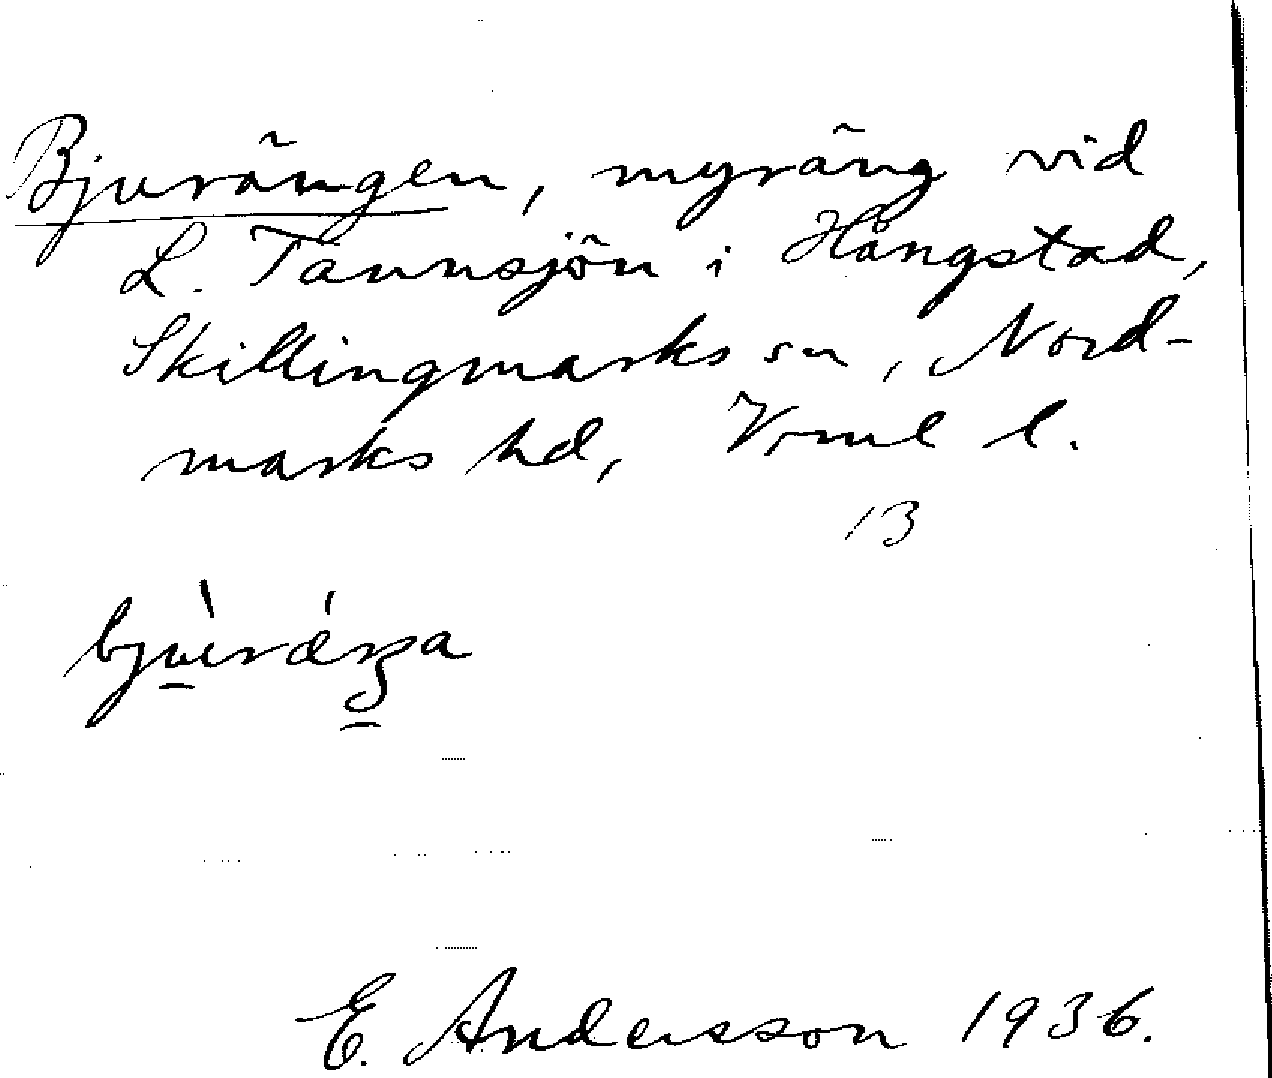 Bjurängen, myräng vid
L. Tannsjön i Hängstad,
Skillingmarks sn, Nord-
marks hd, Vrml l.
13
E. Andersson 1936.